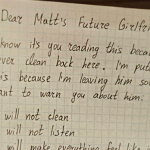 Dear Matt's Future Girlfri
know its you reading this becau
ver clean back here. I'm put
is because I'm leaving him so
ant to warn you about him.
will not clean
will not listen
will make everything feel like